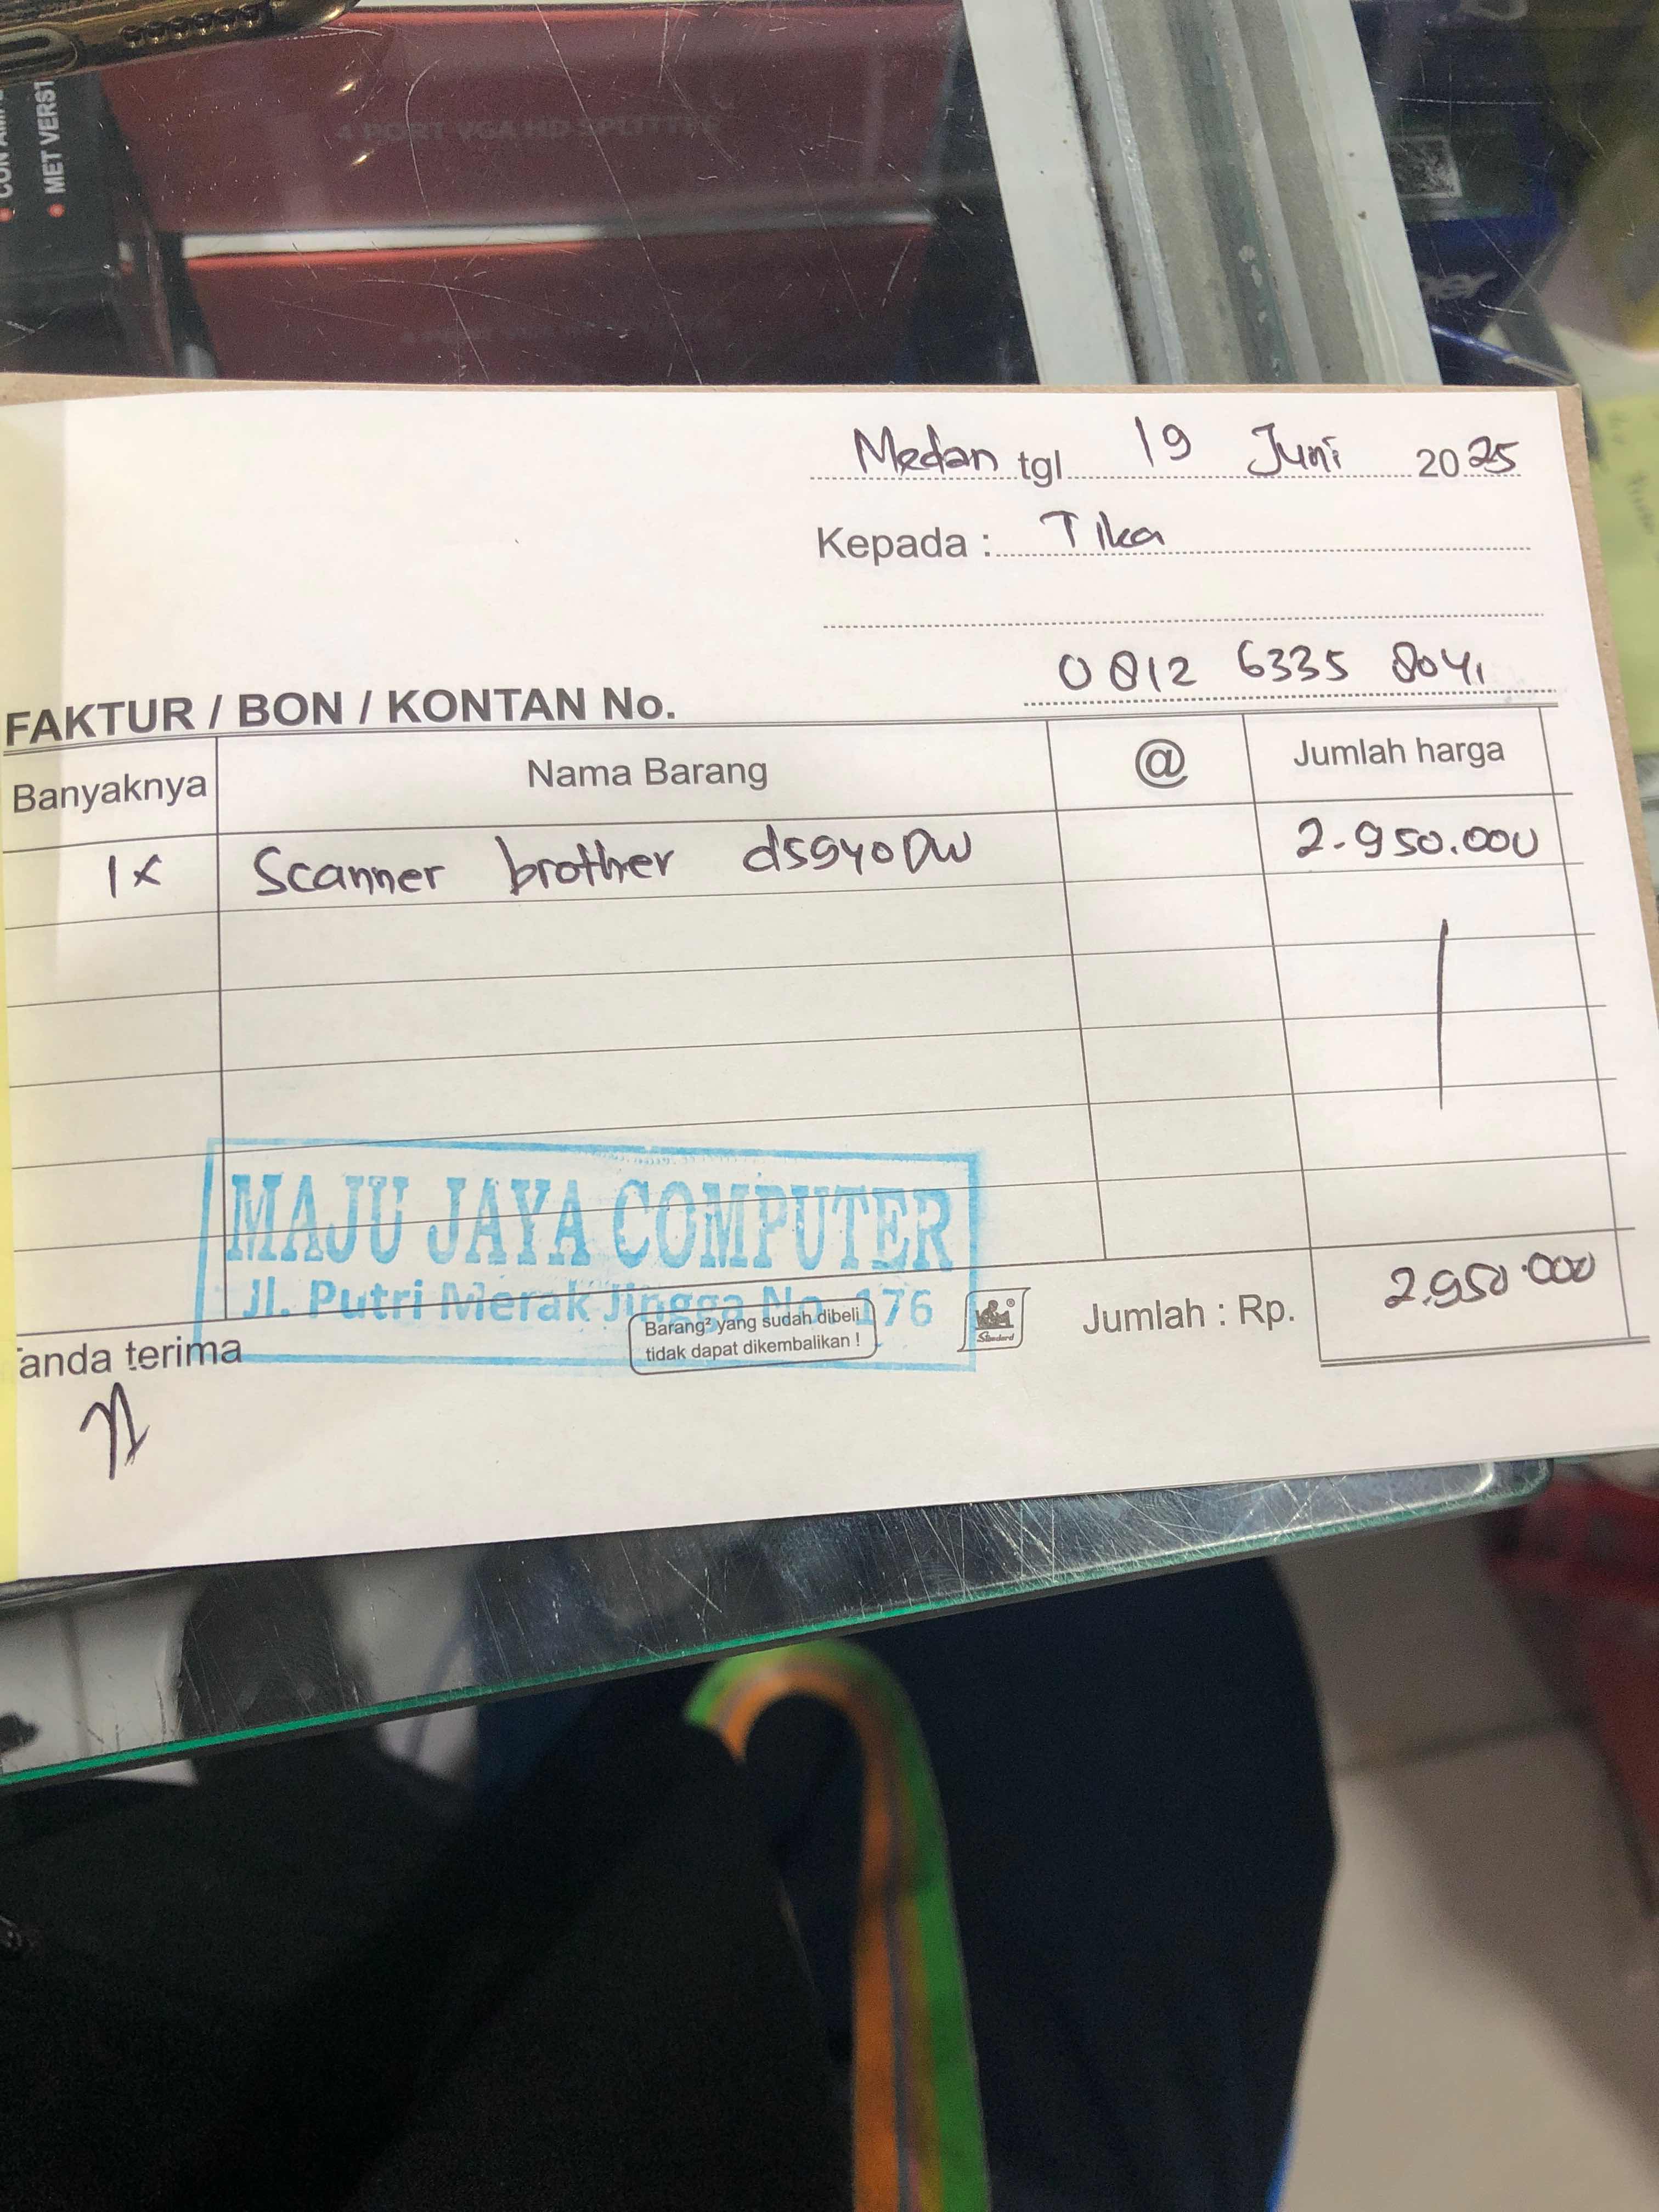 MET VERSI
4 PORT VGA HD SPLITTER
Medan tgl 19 Juni 2025
Kepada : Tika
0812 6335 8041
FAKTUR / BON / KONTAN No.
Banyaknya Nama Barang @ Jumlah harga
1x Scanner brother ds940DW 2.950.000
MAJU JAYA COMPUTER
Jl. Putri Merak Jingga No. 176
Jumlah : Rp. 2.950.000
Barang² yang sudah dibeli
tidak dapat dikembalikan !
Standard
anda terima